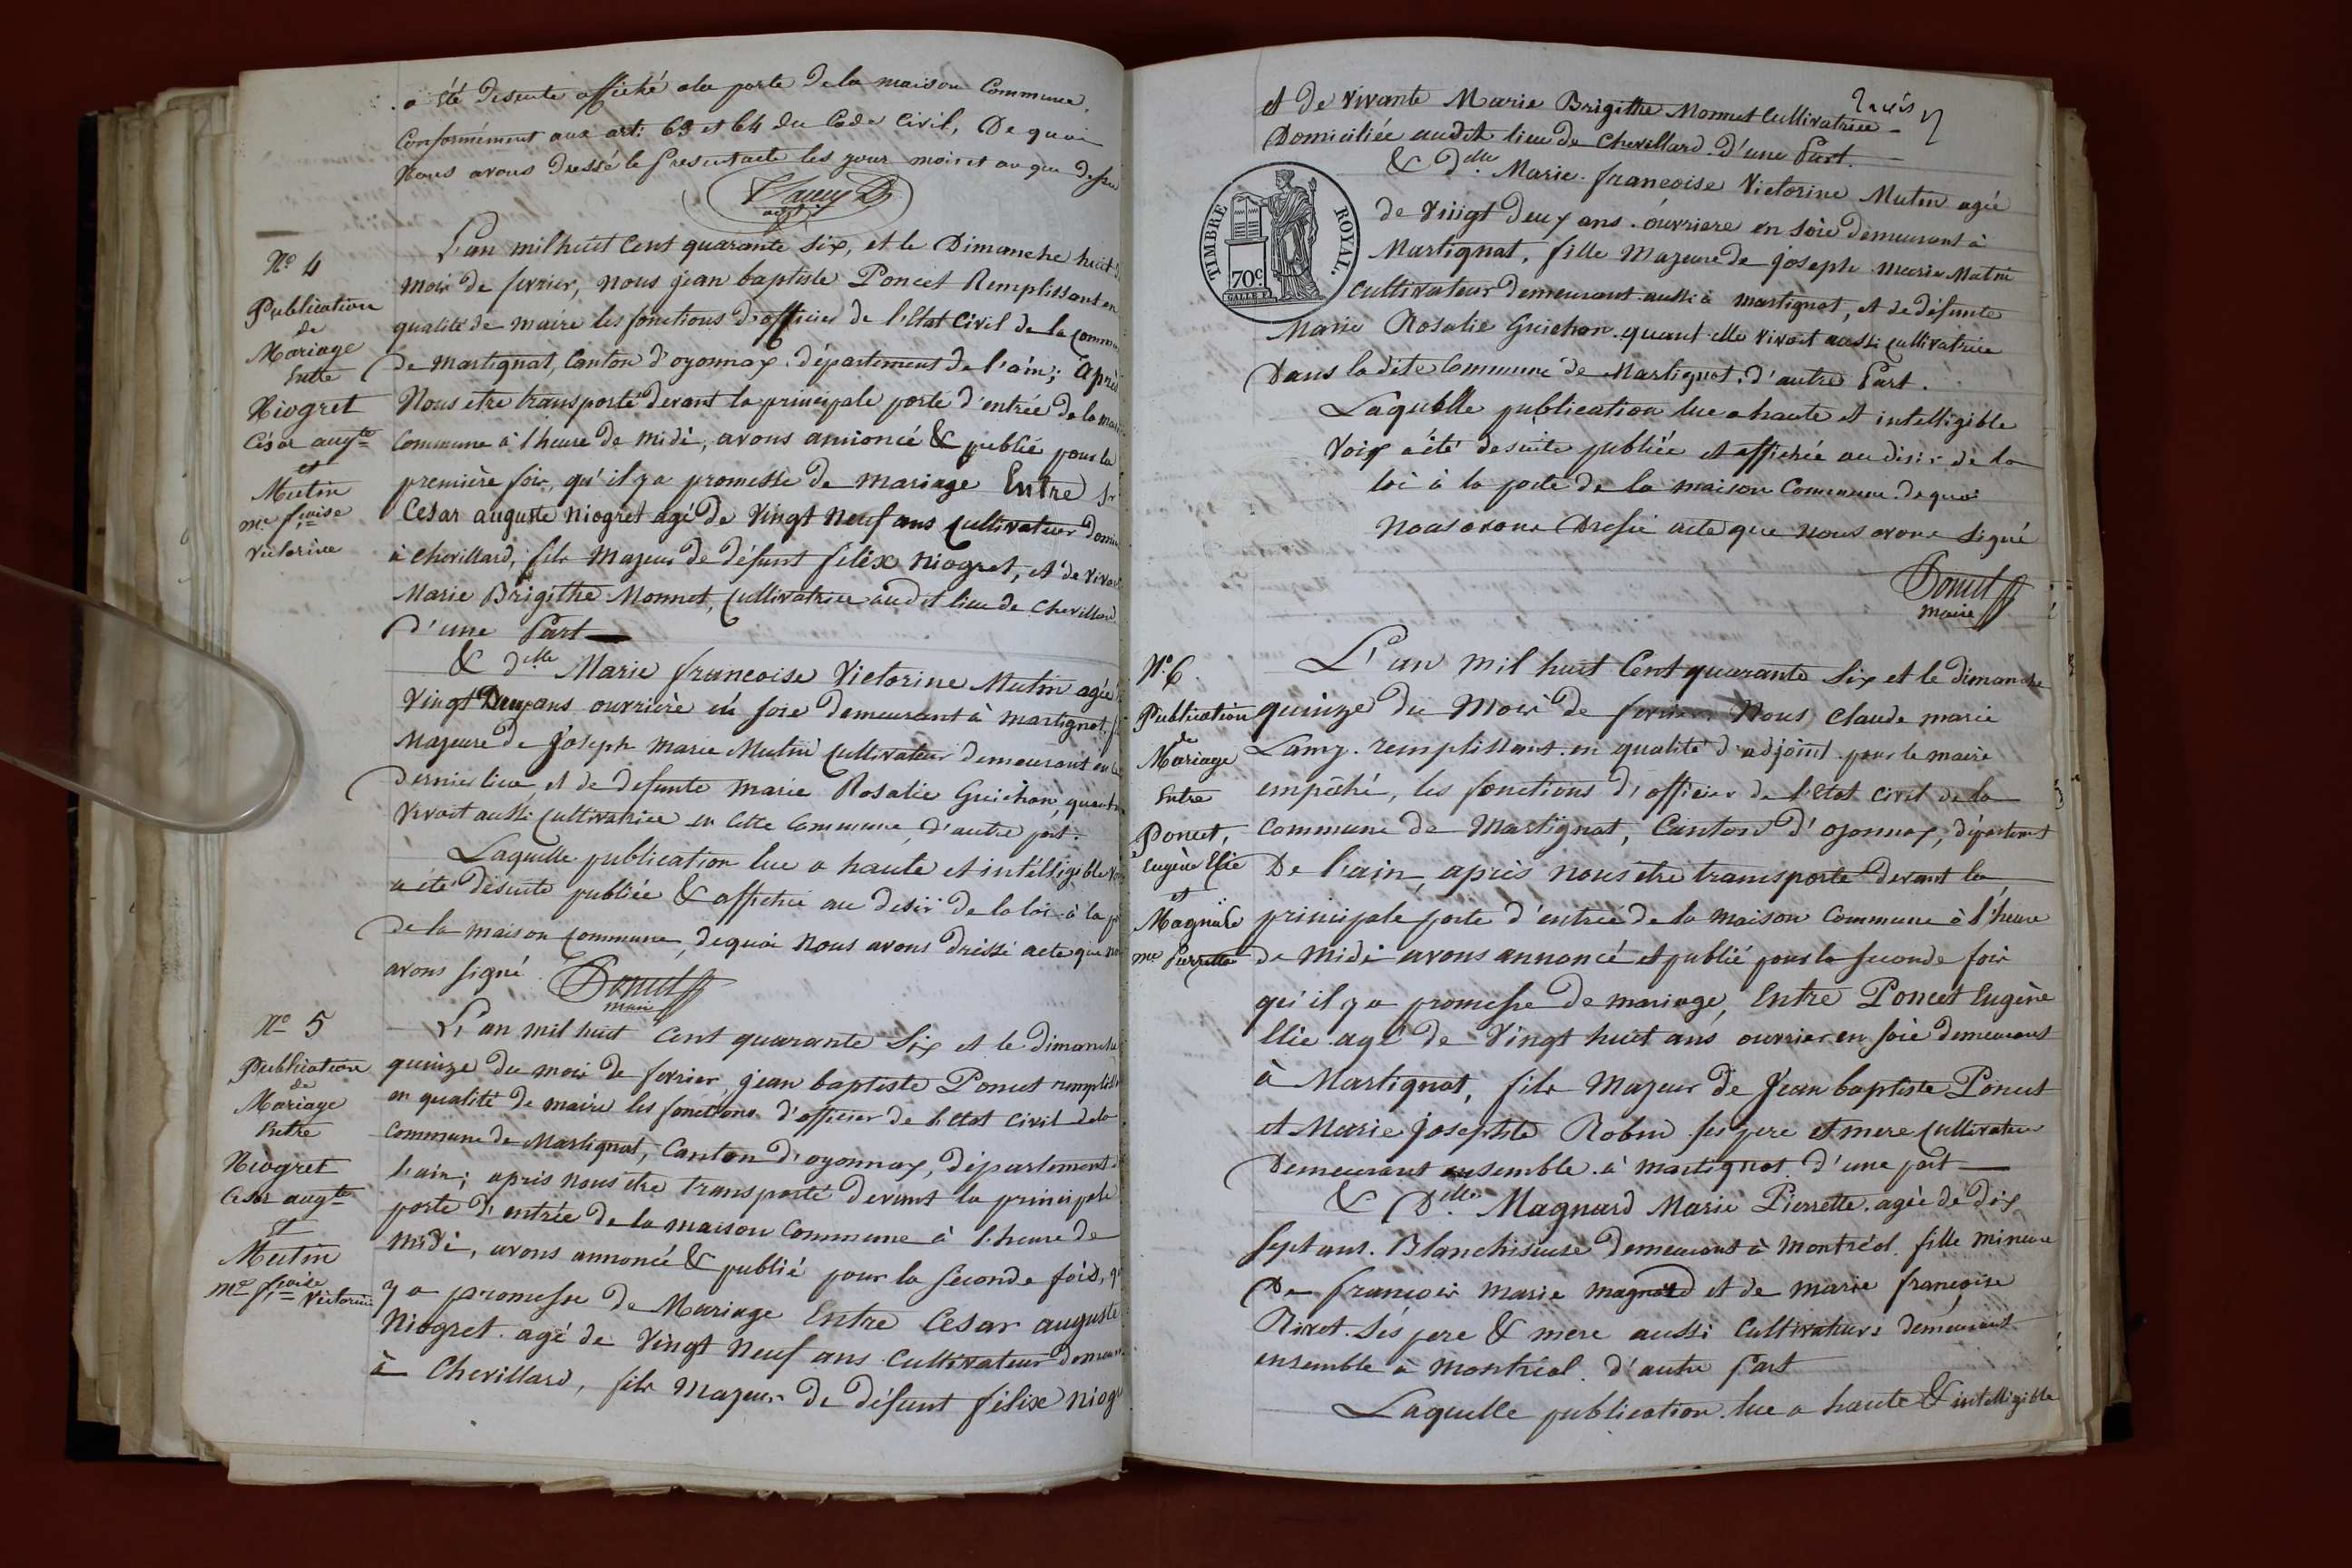 a été desuite affiché a la porte de la maison Commune,
Conformément aux art: 63 et 64 du Code Civil, De quoi
Nous avons dressé le present acte les jour mois et an que dessus
Lamy
adjt
N.o 4
Publication
de
Mariage
Entre
Niogret
César aug.te
et
Mutin
m.e f.coise
Victorine
L'an mil huit Cent quarante six, et le Dimanche huit d
mois de fevrier, nous jean baptiste Poncet Remplissant en
qualité de maire les fonctions d'officier de l'Etat Civil de la Commu
de Martignat, Canton d'oyonnax département de l'ain; Après
Nous etre transporté devant la principale porte d'entrée de la mai
Commune à l'heure de midi, avons annoncé & publié pour la
première fois, qu'il y a promesse de mariage Entre Sr
César auguste Niogret agé de Vingt Neuf ans Cultivateur Domi
à Chevillard, fils Majeur de défunt félix Niogret, et de Viva
Marie Brigithe Monnet, Cultivatrice audit lieu de Chevillard
D'une Part
& d.elle Marie francoise Victorine Mutin agée
Vingt Deux ans ouvrière en soie demeurant à Martignat, f
Majeure de Joseph Marie Mutin Cultivateur demeurant en ce
dernier lieu, et de defunte Marie Rosalie Guichon, quant
Vivoit aussi Cultivatrice en Cette Commune, d'autre part.
Laquelle publication lue a haute et intélligible vo
a été desuite publiée & affichée au desir de la loi à la p
de la maison Commune, dequoi nous avons dréssé acte que no
avons signé
Poncet
maire
N.o 5
Publication
de
Mariage
Entre
Niogret
César aug.te
et
Mutin
m.e f.coise Victorine
L'an mil huit Cent quarante Six et le dimanche
quinze du mois de fevrier jean baptiste Poncet rempliss
en qualité de maire les fonctions d'officier de l'Etat Civil de la
Commune de Martignat, Canton d'oyonnax, département d
l'ain; après nous être transporté devant la principale
porte d'entrée de la maison Commune à l'heure de
midi, avons annoncé & publié pour la Seconde fois, qu
y a promesse de Mariage Entre César auguste
Niogret agé de Vingt Neuf ans Cultivateur Demeur
à Chevillard, fils Majeur de défunt félix Niog
et de Vivante Marie Brigithe Monnet Cultivatrice
Domiciliée audit lieu de Chevillard d'une Part.
TIMBRE ROYAL.
70c.
& d.elle Marie francoise Victorine Mutin agée
de Vingt deux ans ouvriere en soie demeurant à
Martignat, fille Majeure de joseph marie Mutin
Cultivateur demeurant aussi à martignat, et de défunte
Marie Rosalie Guichon quant elle vivoit aussi Cultivatrice
Dans la dite Commune de Martignat, d'autre Part.
Laquelle publication lue a haute et intelligible
Voix a été desuite publiée et affichée au desir de la
loi à la porte de la maison Commune dequoi
Nous avons Dressé acte que nous avons signé
Poncet
maire
N.o 6.
Publication
de
Mariage
Entre
Poncet,
Eugène Elie
et
Magnard
m.e Pierrette
L'an mil huit Cent quarante Six et le dimanche
quinze du Mois de fevrier Nous Claude marie
Lamy remplissant en qualité d'adjoint pour le maire
empêché, les fonctions d'officier de l'Etat Civil de la
Commune de Martignat, Canton d'oyonnax, département
De l'ain, après nous être transporté devant la
principale porte d'entrée de la maison Commune à l'heure
de Midi avons annoncé et publié pour la seconde fois
qu'il y a promesse de mariage, Entre Poncet Eugène
Elie agé de Vingt huit ans ouvrier en soie demeurant
à Martignat, fils Majeur de Jean baptiste Poncet
et Marie Josephte Robin ses pere et mere Cultivateurs
Demeurant ensemble à martignat d'une part
& D.elle Magnard Marie Pierrette agée de dix
Sept ans. Blanchisseuse demeurant à Montréal, fille mineure
De francois marie magnard et de marie françoise
Rivet Ses pere & mere aussi Cultivateurs demeurant
ensemble à Montréal d'autre Part
Laquelle publication lue a haute & intelligible